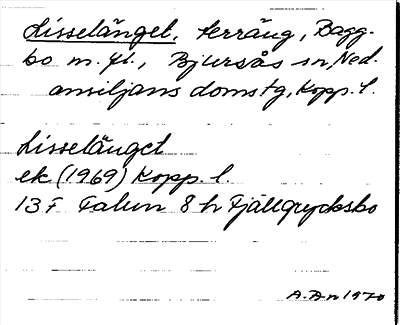 Lisselänget, terräng, Bagg-
bo m. fl., Bjursås sn, Ned-
ansiljans domstg, Kopp. l.
Lisselänget
ek (1969) Kopp. l.
13 F Falun 8 h Fjällgrycksbo
A. An 1970